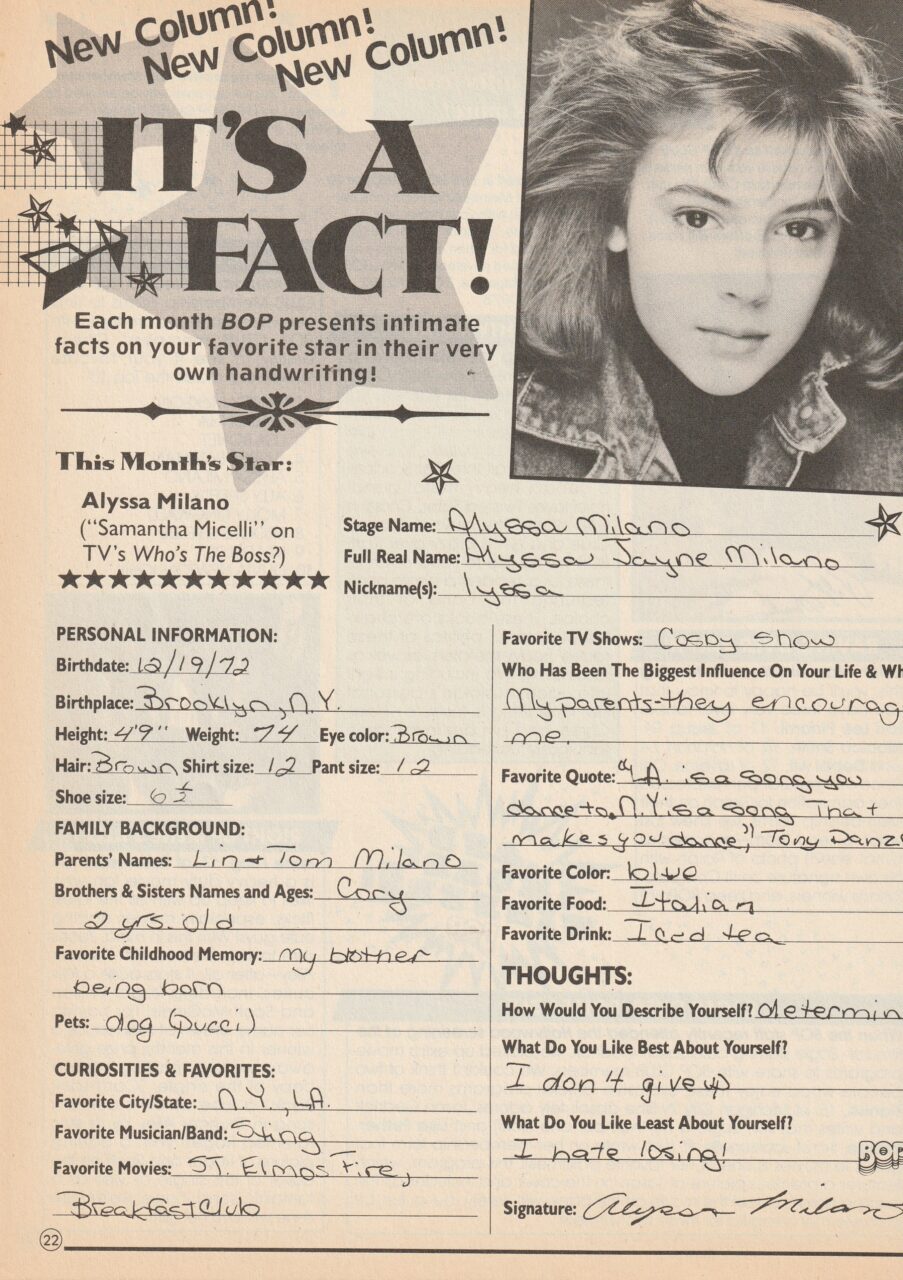 New Column!
New Column!
New Column!
IT'S A
FACT!
Each month BOP presents intimate
facts on your favorite star in their very
own handwriting!
This Month's Star:
Alyssa Milano
("Samantha Micelli" on
TV's Who's The Boss?)
Stage Name: Alyssa Milano
Full Real Name: Alyssa Jayne Milano
Nickname(s): lyssa
PERSONAL INFORMATION:
Birthdate: 12/19/72
Birthplace: Brooklyn, N.Y.
Height: 4'9" Weight: 74 Eye color: Brown
Hair: Brown Shirt size: 12 Pant size: 12
Shoe size: 6 1/2
FAMILY BACKGROUND:
Parents' Names: Lin + Tom Milano
Brothers & Sisters Names and Ages: Cory
2 yrs. old
Favorite Childhood Memory: my brother
being born
Pets: dog (pucci)
CURIOSITIES & FAVORITES:
Favorite City/State: N.Y., LA.
Favorite Musician/Band: Sting
Favorite Movies: ST. Elmos Fire,
Breakfast Club
Favorite TV Shows: Cosby show
Who Has Been The Biggest Influence On Your Life & Wh
My parents-they encourag
me.
Favorite Quote: "LA. is a song you
dance to. N.Y. is a song That
makes you dance," Tony Danz
Favorite Color: blue
Favorite Food: Italian
Favorite Drink: Iced tea
THOUGHTS:
How Would You Describe Yourself? determin
What Do You Like Best About Yourself?
I don't give up
What Do You Like Least About Yourself?
I hate losing!
BOP
Signature: Alyssa Milano
22